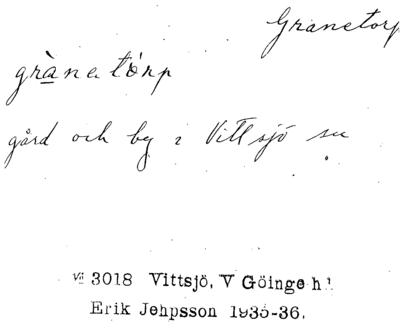 Granetorp
grànetórp
gård och by i Vittsjö sn
VG 3018 Vittsjö, V Göinge h.
Erik Jehpsson 1935-36.